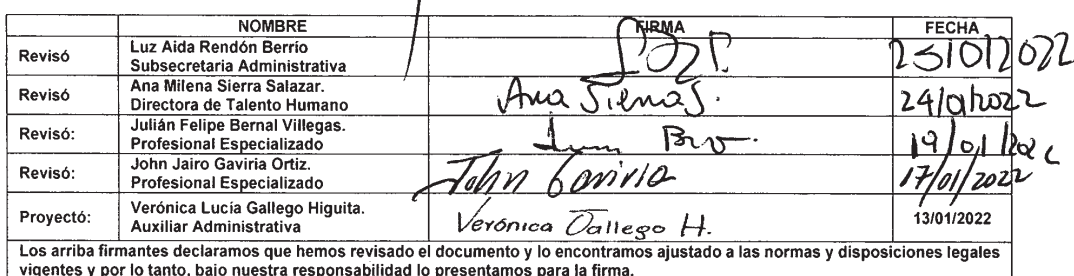 NOMBRE FIRMA FECHA
Revisó Luz Aida Rendón Berrío
Subsecretaria Administrativa 25/01/2022
Revisó Ana Milena Sierra Salazar.
Directora de Talento Humano Ana Sierra S. 24/01/2022
Revisó: Julián Felipe Bernal Villegas.
Profesional Especializado 19/01/202
Revisó: John Jairo Gaviria Ortiz.
Profesional Especializado John Gaviria 17/01/2022
Proyectó: Verónica Lucía Gallego Higuita.
Auxiliar Administrativa Verónica Gallego H. 13/01/2022
Los arriba firmantes declaramos que hemos revisado el documento y lo encontramos ajustado a las normas y disposiciones legales
vigentes y por lo tanto, bajo nuestra responsabilidad lo presentamos para la firma.